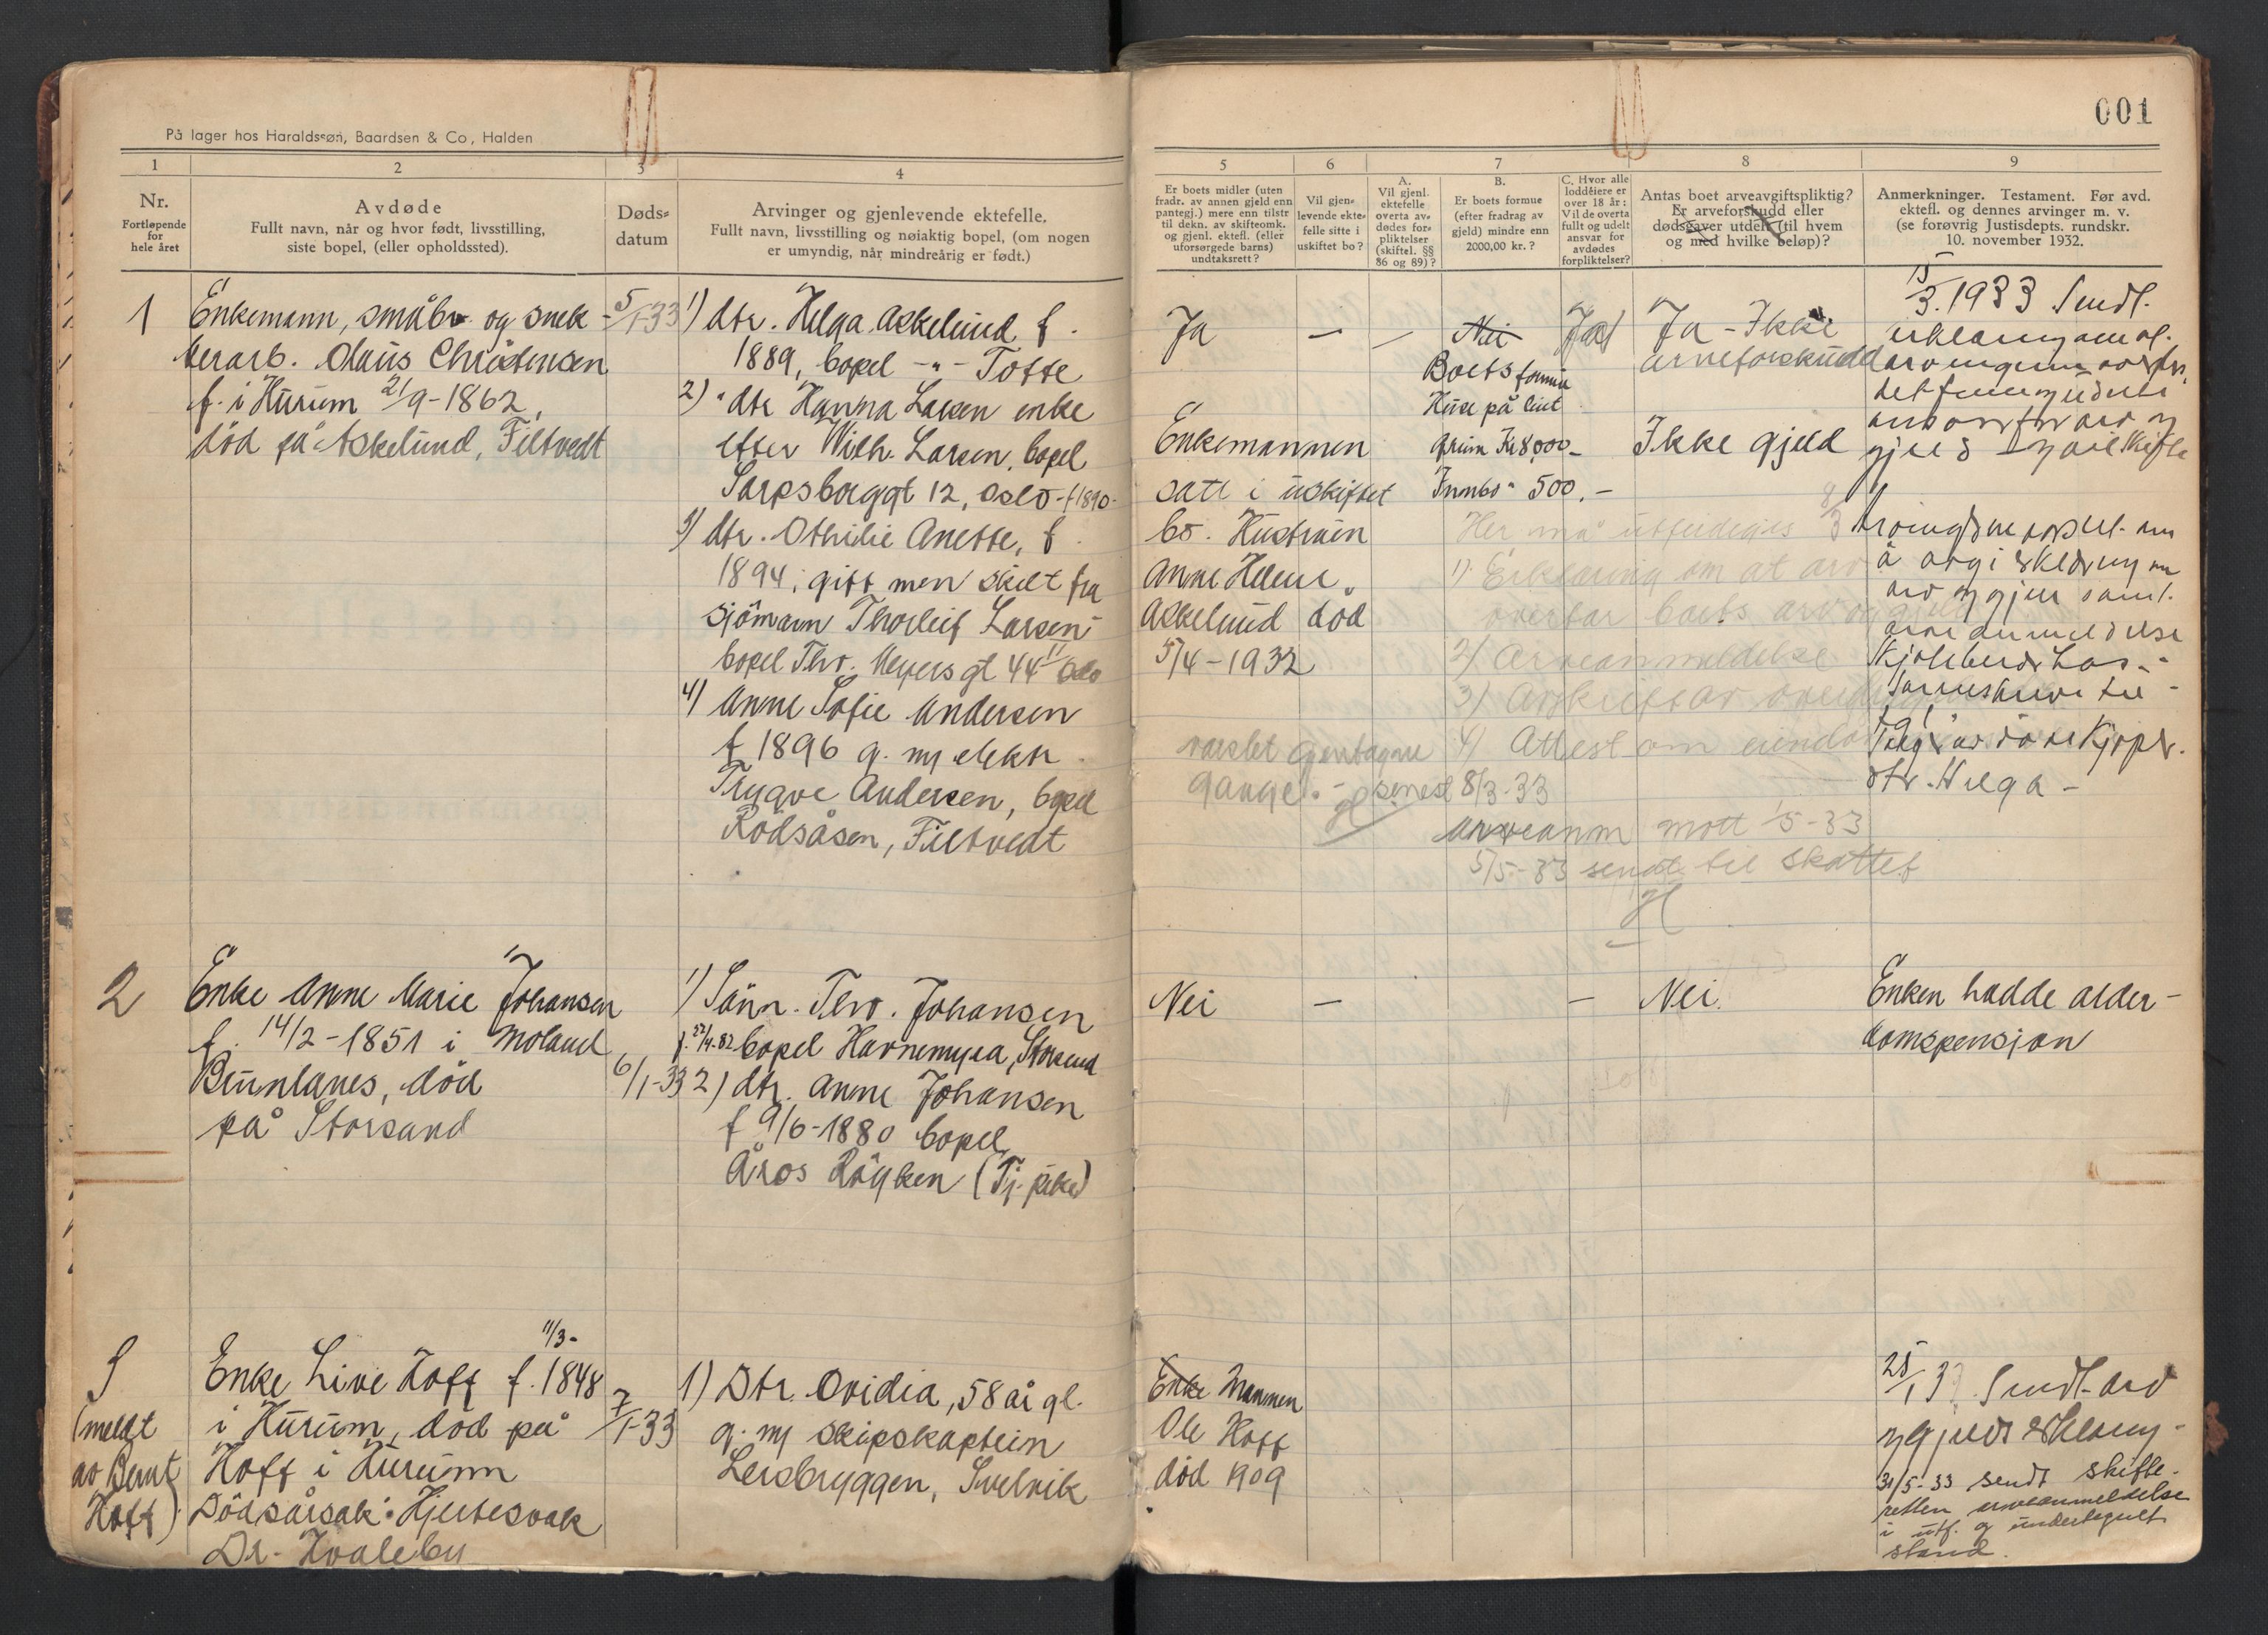 På lager hos Haraldssøn, Baardsen & Co, Halden
1
2
3
4
Nr.
Fortløpende
for
hele året
Avdøde
Fullt navn, når og hvor født, livsstilling,
siste bopel, (eller opholdssted).
Døds-
datum
Arvinger og gjenlevende ektefelle.
Fullt navn, livsstilling og nøiaktig bopel, (om nogen
er umyndig, når mindreårig er født.)
1
Enkemann, småbr. og snek-
kerarb. Olaus Christensen
f. i Hurum 21/9-1862,
død på Askelund, Filtvedt
5/1-33
1) dtr. Helga Askelund f.
1889, bopel -"- Tofte
2) " dtr Hanna Larsen enke
efter Wilh. Larsen, bopel
Sarpsborggt 12, Oslo - f 1890-
3) dtr. Othilie Anette, f.
1894, gift men skilt fra
sjömann Thorleif Larsen-
bopel Thv. Meyers gt 44 Oslo
4) Anne Sofie Andersen
f 1896 g. m/ elektr.
Trygve Andersen, bopel
Rödsåsen, Filtvedt
2
Enke Anne Marie Johansen
f. 14/2-1851 i Moland
Bunnlanes, död
på Storsand
6/1-33
1) Sönn. Thv. Johansen
bopel Havnemyra, Storsand
2) dtr. Anne Johansen
f 9/6-1880 bopel
Åros Röyken (Tj. pike)
3
(meldt
av Bernt
Hoff)
11/3-
Enke Live Hoff f. 1848
i Hurum, död på
Hoff i Hurum
Dödsårsak: Hjertesvak
Dr. Hvaleby
7/1-33
1) Dtr. Ovidia, 58 år gl.
g. m/ skipskaptein
Leirbryggen, Svelvik
001
5
6
7
8
9
Er boets midler (uten
fradr. av annen gjeld enn
pantegj.) mere enn tilstr
til dekn. av skifteomk.
og gjenl. ektefl. (eller
uforsørgede barns)
undtaksrett?
Vil gjen-
levende ekte-
felle sitte i
uskiftet bo?
A.
Vil gjenl.
ektefelle
overta av-
dødes for-
pliktelser
(skiftel. §§
86 og 89)?
B.
Er boets formue
(efter fradrag av
gjeld) mindre enn
2000,00 kr.?
C. Hvor alle
loddeiere er
over 18 år:
Vil de overta
fullt og udelt
ansvar for
avdødes
forpliktelser?
Antas boet arveavgiftspliktig?
Er arveforskudd eller
dødsgaver utdelt (til hvem
og med hvilke beløp)?
Anmerkninger. Testament. Før avd.
ektefl. og dennes arvinger m. v.
(se forøvrig Justisdepts. rundskr.
10. november 1932.
Ja
—
—
Nei
Ja
Boets formue
Huse på leiet
grunn Kr 8,000-
Innbo " 500.-
Ja - Ikke
arveforskudd
Ikke gjeld
Enkemannen
satt i uskiftet
bo. Hustruen
Anne Helene
Askelund död
5/4-1932
15/3.1933 Sendt.
Her må utferdiges
1) Erklæring om at arv
overtar boets arv og gjeld
2) Arveanmeldelse
3) Avskrift av
4) Attest om eiendom
varslet gjentagne
gange. - senest 8/3-33
arveanm mott 1/5-33
5/5-33 sendt til skattef
dtr. Helga -
Nei
—
—
Nei.
Enken hadde alder-
domspensjon
Enke Mannen
Ole Hoff
död 1909
25/1 33. Sendt arv
og gjelds erklæring-
31/5-33 sendt skifte-
retten arveanmeldelse
i utf. og undertegnet
stand.